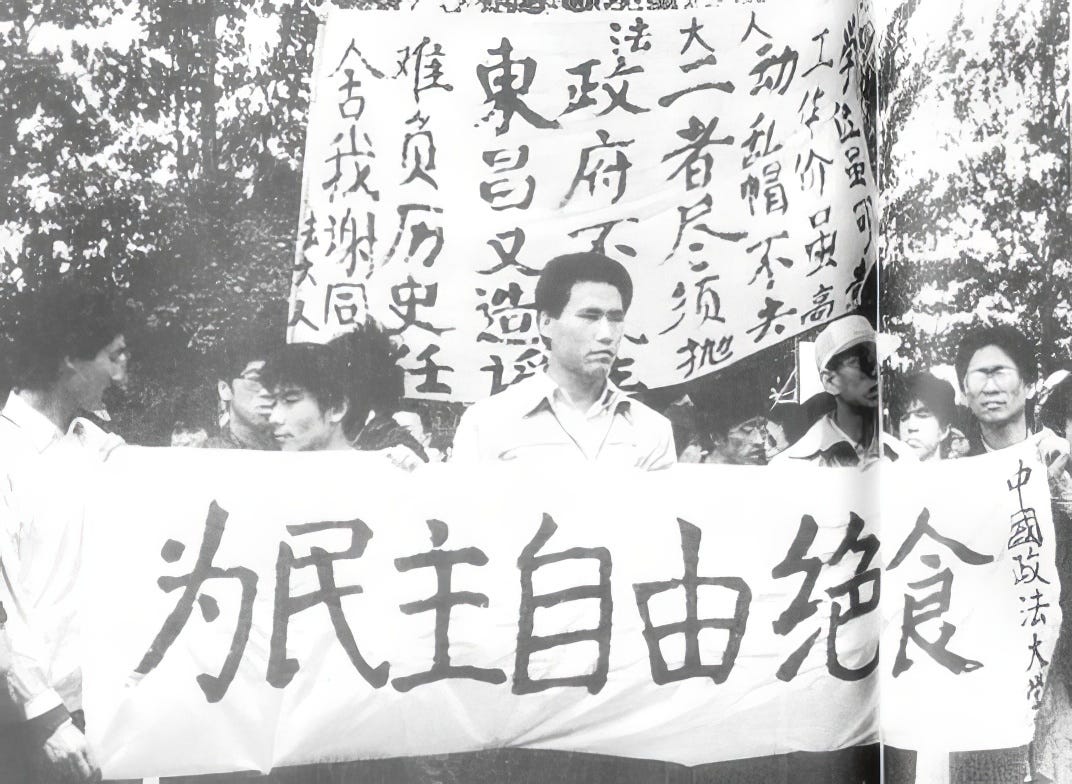 学位虽可贵
工作价虽高
人动乱帽不去
大二者尽须抛
法政府不
東昌又造谣
难员历史任
舍我谢同
为民主自由绝食
中國政法大學